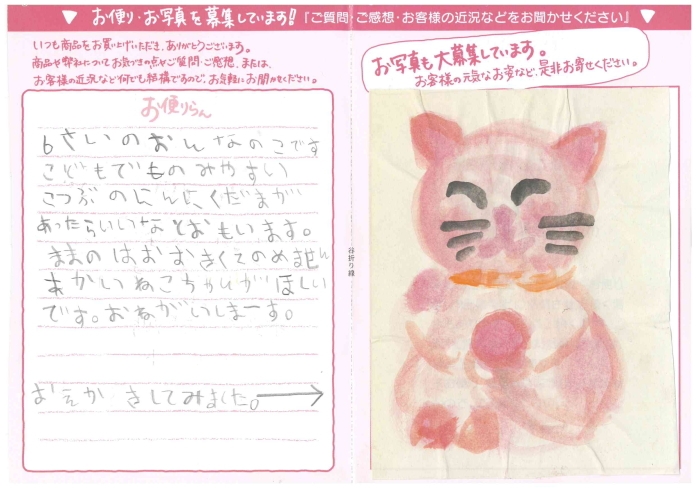 お便り・お写真を募集しています!!『ご質問・ご感想・お客様の近況などをお聞かせください』
いつも商品をお買い上げいただき、ありがとうございます。
商品や弊社についてお気づきの点やご質問・ご感想、または、
お客様の近況など何でも結構ですので、お気軽にお聞かせください。
お便りらん
6さいのおんなのこです
こどもでものみやすい
こつぶのにんにくだまが
あったらいいなとおもいます。
ままのはおおきくてのめません
あかいねこちゃんがほしい
です。おねがいしまーす。
おえかきしてみました。→
谷折り線
お写真も大募集しています。
お客様の元気なお姿など、是非お寄せください。